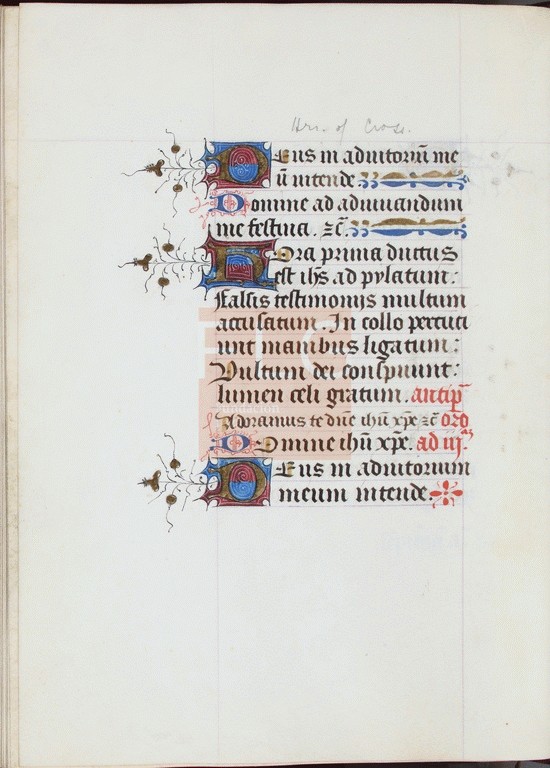 Hrs. of Cross.
Deus in adiutoriū me
ū intende
Domine ad adiuuandum
me festina. ⁊c̄.
Hora prima ductus
est ihs̄ ad pylatum:
falsis testimonijs multum
accusatum. In collo percuci
unt manibus ligatum:
Vultum dei conspuunt:
lumen celi gratum. antip̄
Adoramus te dn̄e ihū xp̄e ⁊c̄ oro
Domine ihū xp̄e. ad iij.
Deus in adiutorium
meum intende.